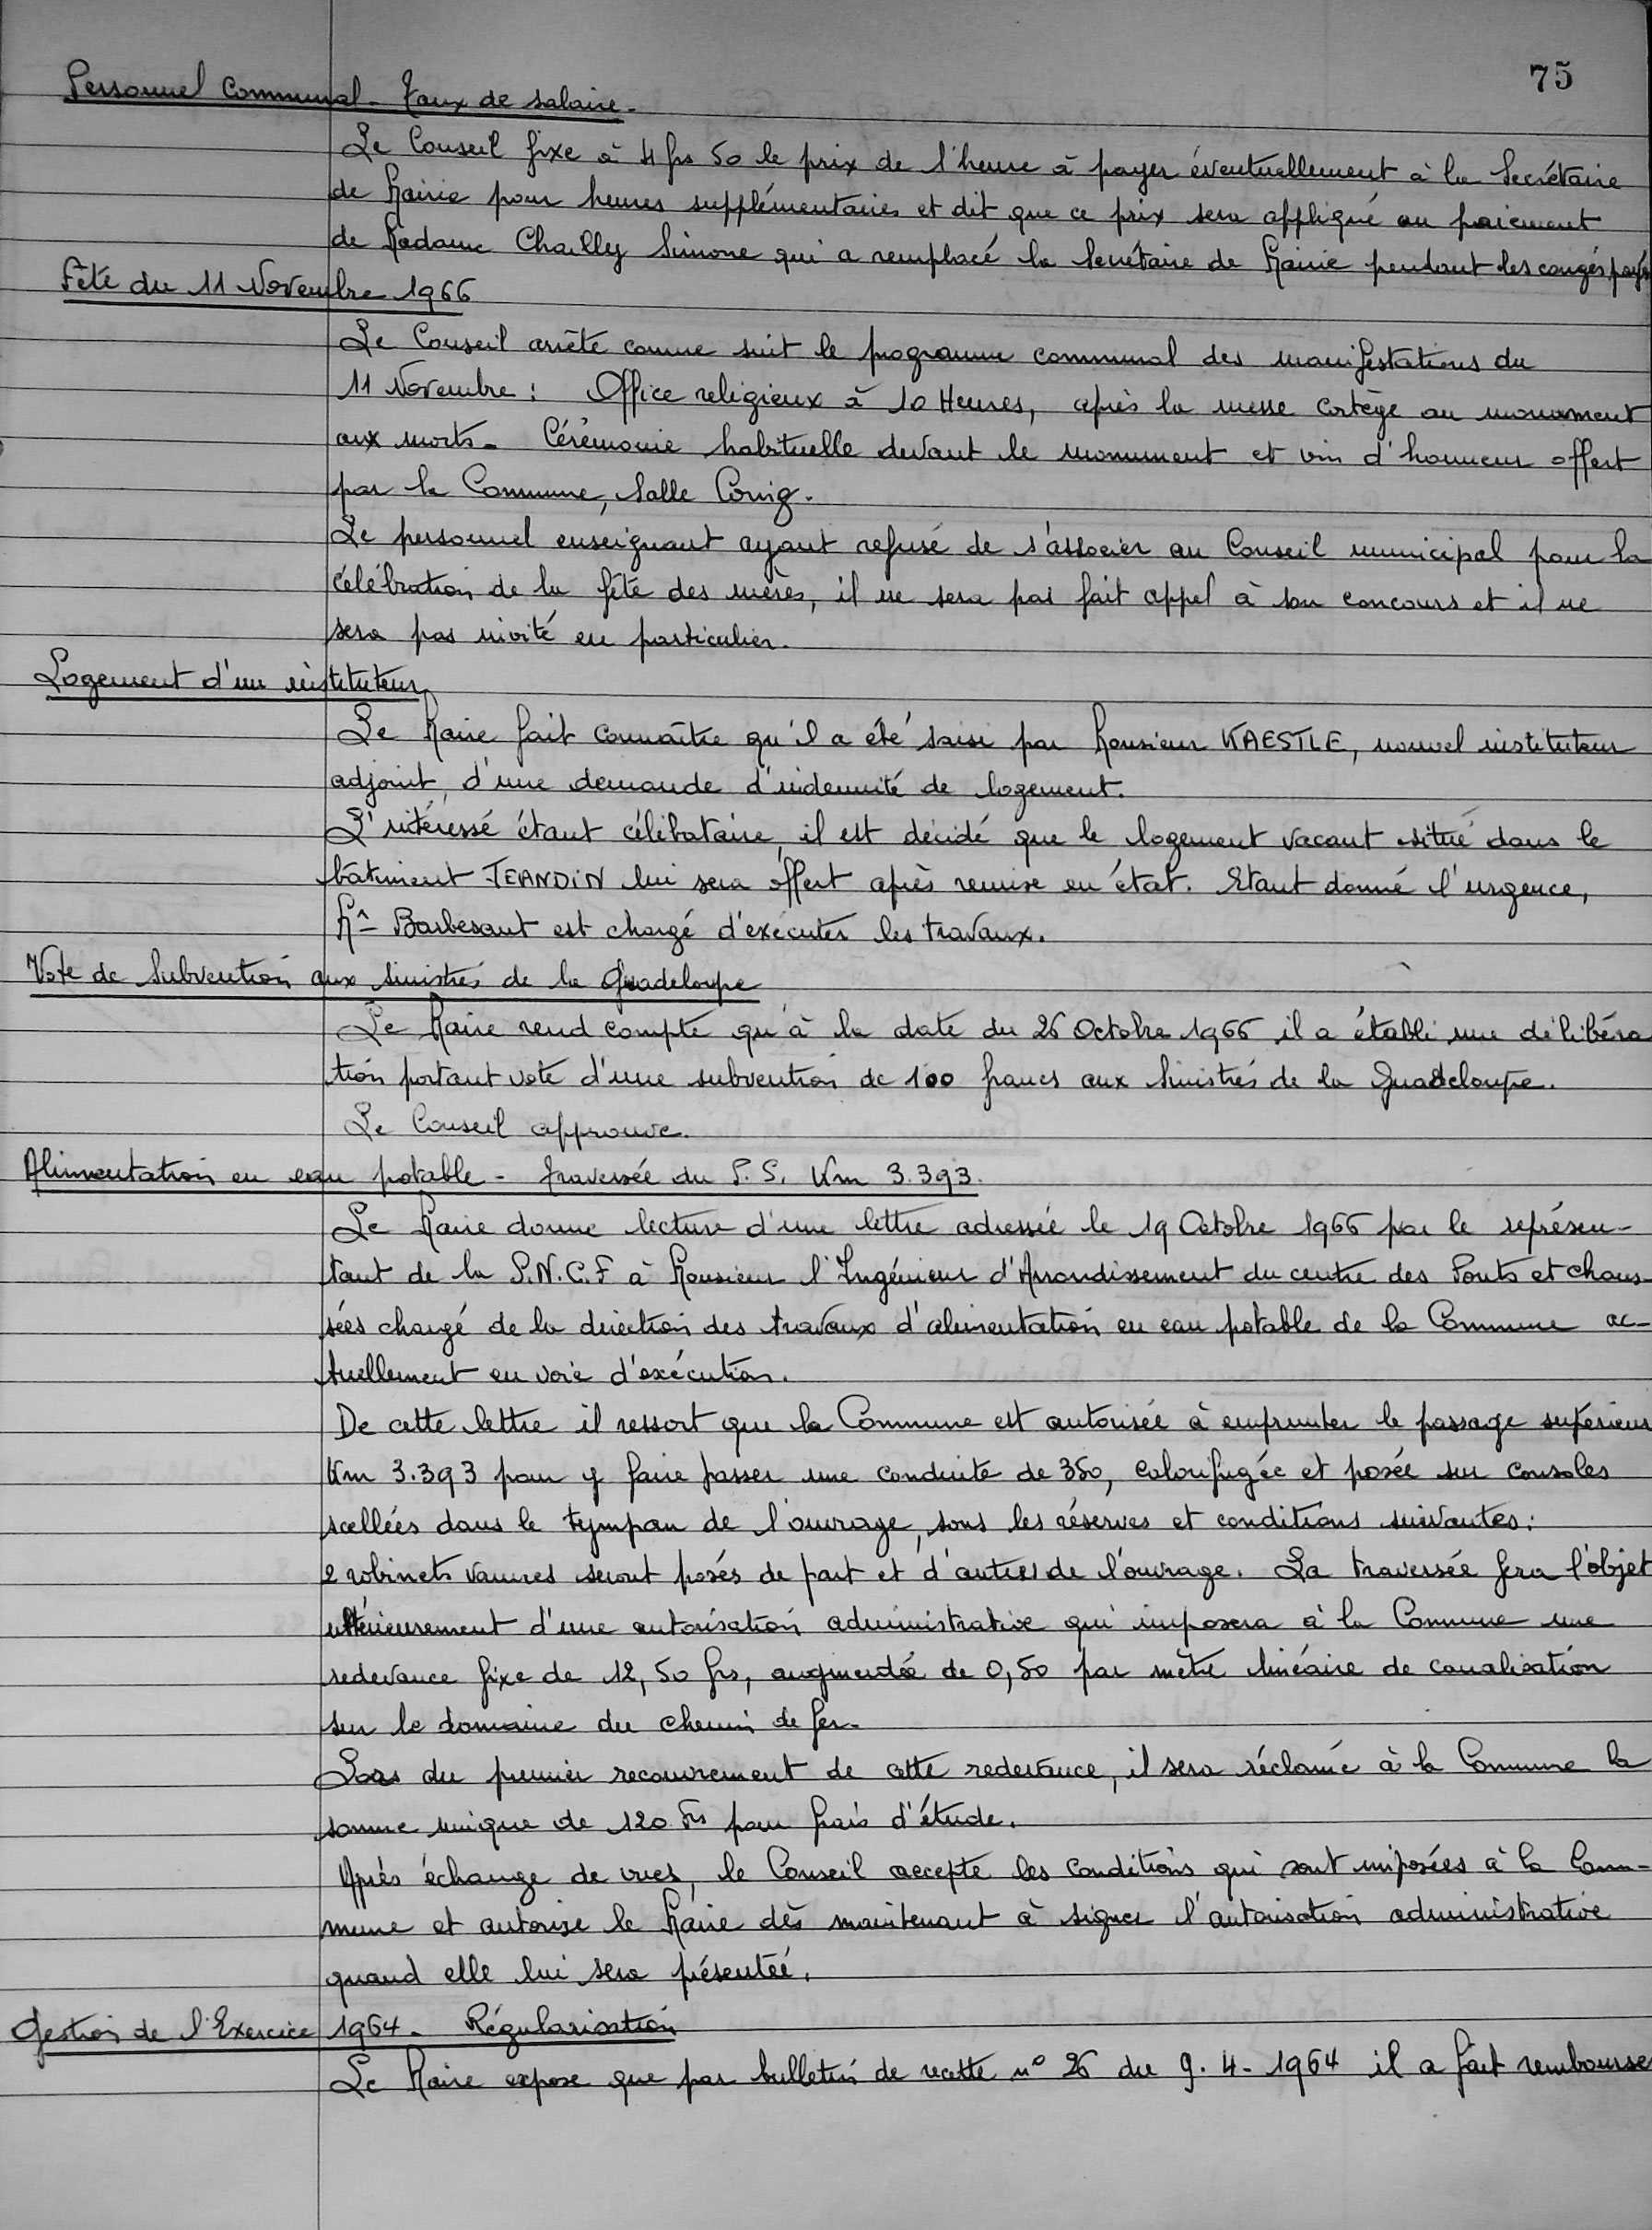 75
Personnel Communal - Taux de salaire.
Le Conseil fixe à 4 frs 50 le prix de l'heure à payer éventuellement à la Secrétaire
de Mairie pour heures supplémentaires et dit que ce prix sera appliqué au paiement
de Madame Chailly Simone qui a remplacé la Secrétaire de Mairie pendant les congés payés
Fête du 11 Novembre 1966
Le Conseil arrête comme suit le programme communal des manifestations du
11 Novembre : Office religieux à 10 Heures, après la messe cortège au monument
aux morts - Cérémonie habituelle devant le monument et vin d'honneur offert
par la Commune, Salle
Le personnel enseignant ayant refusé de s'associer au Conseil municipal pour la
célébration de la fête des mères, il ne sera pas fait appel à son concours et il ne
sera pas invité en particulier.
Logement d'un instituteur
Le Maire fait connaître qu'il a été saisi par Monsieur KAESTLE, nouvel instituteur
adjoint, d'une demande d'indemnité de logement.
L'intéressé étant célibataire, il est décidé que le logement vacant situé dans le
bâtiment JEANDIN lui sera offert après remise en état. Etant donné l'urgence,
Mr Barbesant est chargé d'exécuter les travaux.
Vote de Subvention aux sinistrés de la Guadeloupe
Le Maire rend compte qu'à la date du 26 Octobre 1966 il a établi une délibéra
tion portant vote d'une subvention de 100 francs aux Sinistrés de la Guadeloupe.
Le Conseil approuve.
Alimentation en eau potable - traversée du P.S. Km 3.393.
Le Maire donne lecture d'une lettre adressée le 19 Octobre 1966 par le représen-
tant de la S.N.C.F à Monsieur l'Ingénieur d'Arrondissement du centre des Ponts et chaus-
sées chargé de la direction des travaux d'alimentation en eau potable de la Commune ac-
tuellement en voie d'exécution.
De cette lettre il ressort que la Commune est autorisée à emprunter le passage supérieur
Km 3.393 pour y faire passer une conduite de 350, calorifugée et posée sur consoles
scellées dans le tympan de l'ouvrage, sous les réserves et conditions suivantes :
2 robinets vannes seront posés de part et d'autres de l'ouvrage. La traversée fera l'objet
ultérieurement d'une autorisation administrative qui imposera à la Commune une
redevance fixe de 12,50 frs, augmentée de 0,50 par mètre linéaire de canalisation
sur le domaine du chemin de fer.
Lors du premier recouvrement de cette redevance, il sera réclamé à la Commune la
somme unique de 120 Frs pour frais d'étude.
Après échange de vues, le Conseil accepte les conditions qui sont imposées à la Com-
mune et autorise le Maire dès maintenant à signer l'autorisation administrative
quand elle lui sera présentée.
Gestion de l'Exercice 1964 - Régularisation
Le Maire expose que par bulletin de recette n° 26 du 9.4-1964 il a fait rembourse